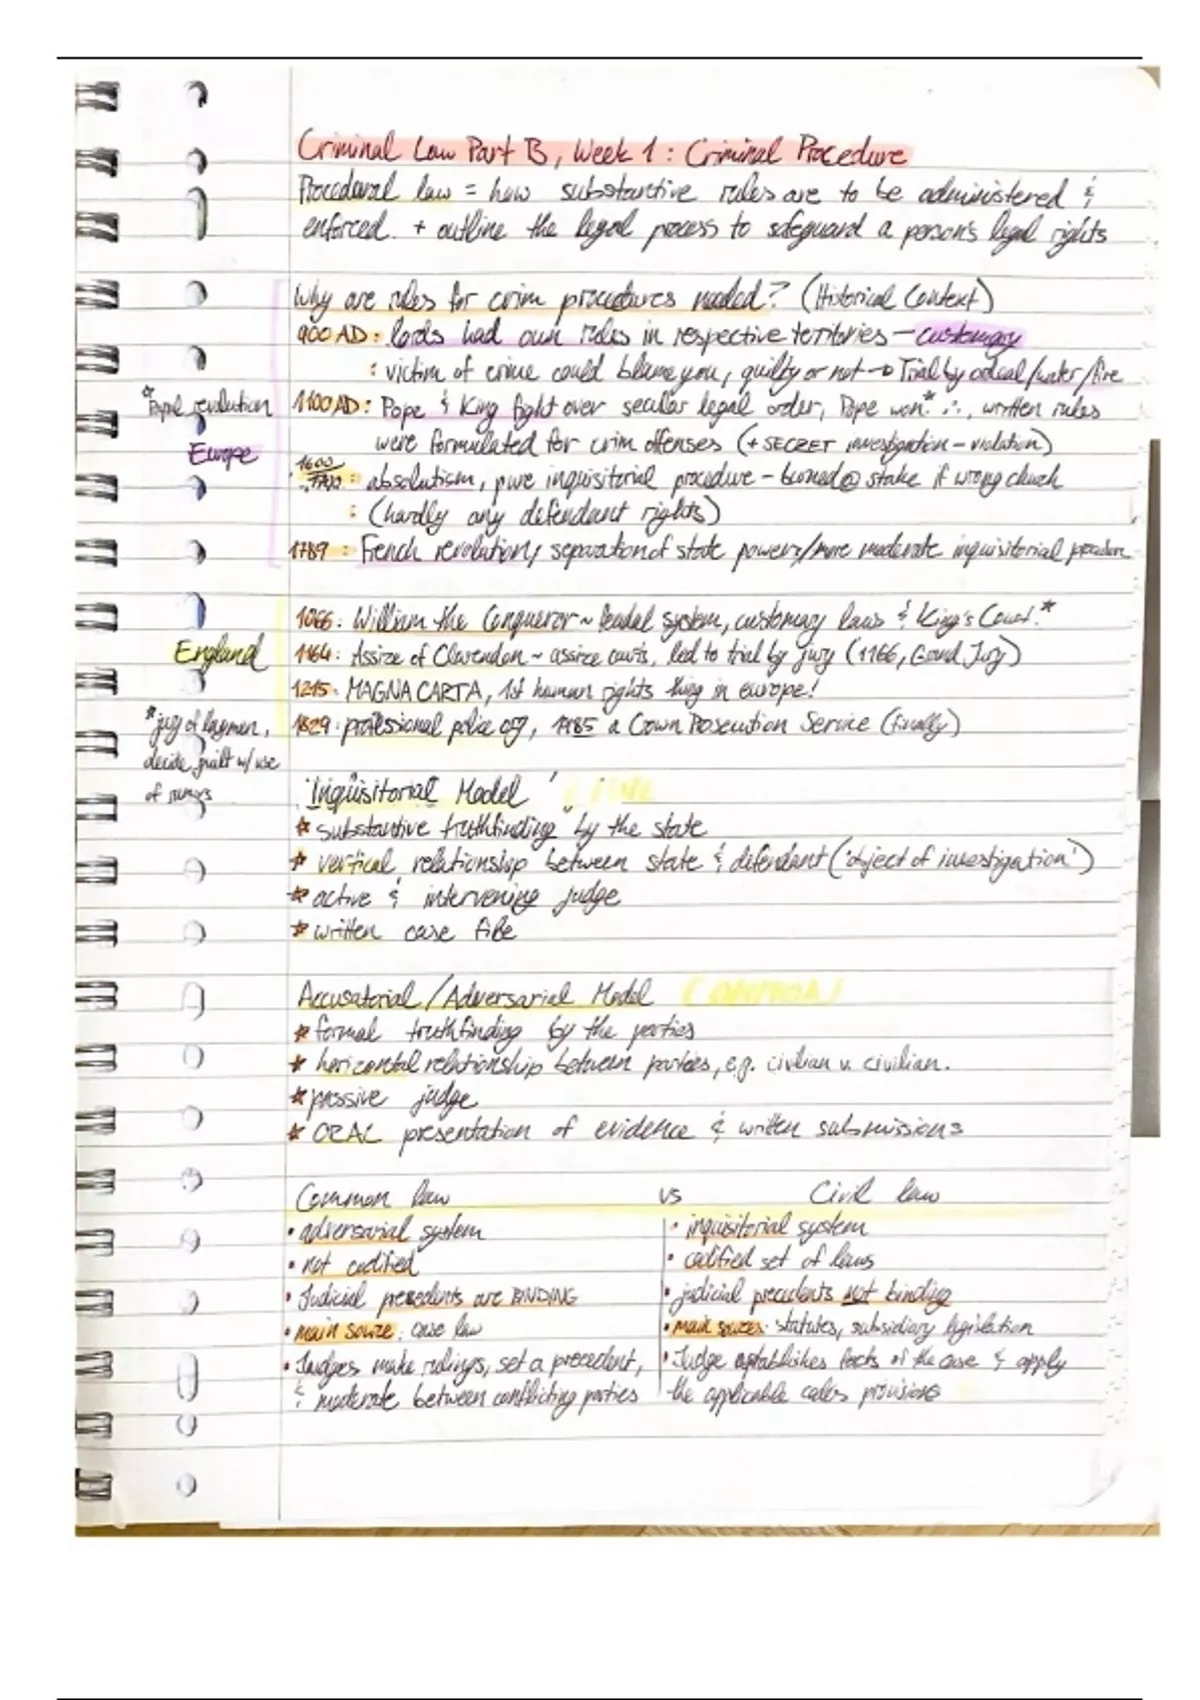 Criminal Law Part B, Week 1: Criminal Procedure
Procedural law = how substantive rules are to be administered &
enforced. + outline the legal process to safeguard a person's legal rights
Why are rules for crim procedures needed? (Historical Context)
900 AD: lords had own rules in respective territories – customary
: victim of crime could blame you, guilty or not → Trial by ordeal/water/fire
*Papal revolution
1100 AD: Pope & King fight over secular legal order, Pope won* ∴, written rules
were formulated for crim offenses (+ SECRET investigation – violation)
Europe
1600
1700 : absolutism, pure inquisitorial procedure – burned @ stake if wrong church
: (hardly any defendant rights)
1789 : French revolution, separation of state powers/more moderate inquisitorial
1066: William the Conqueror ~ feudal system, customary laws & King's Court*
England
1164: Assize of Clarendon ~ assize courts, led to trial by jury (1166, Grand Jury)
1215: MAGNA CARTA, 1st human rights thing in europe!
*jury of laymen,
decide guilt w/ use
of rumors
1829: professional police org, 1985 a Crown Prosecution Service (finally)
'Inquisitorial Model'
* "substantive truthfinding" by the state
* vertical relationship between state & defendant ('object of investigation')
* active & intervening judge
* written case file
Accusatorial/Adversarial Model COMMON
* formal truthfinding by the parties
* horizontal relationship between parties, e.g. civilian v. civilian.
* passive judge
* ORAL presentation of evidence & written submissions
Common law vs Civil law
• adversarial system
• not codified
• Judicial precedents are BINDING
• main source: case law
• Judges make rulings, set a precedent,
& moderate between conflicting parties
• inquisitorial system
• codified set of laws
• judicial precedents not binding
• main sources: statutes, subsidiary legislation
• Judge establishes facts of the case & apply
the applicable codes provisions